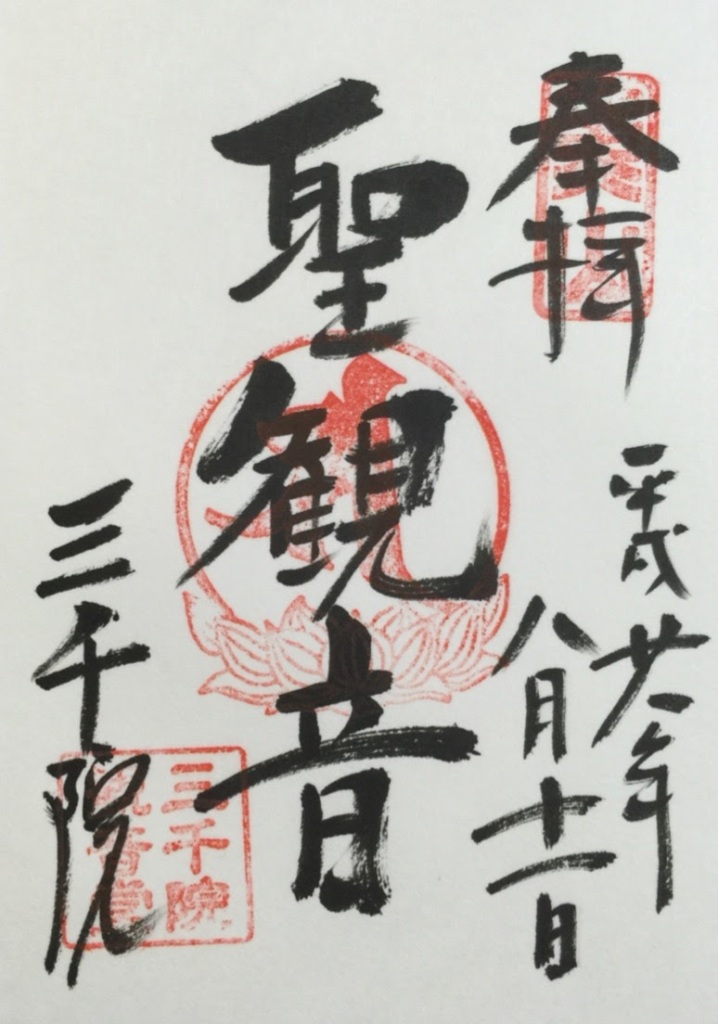 奉拝
平成廿八年
八月十一日
聖観音
三千院
三千院
観音堂